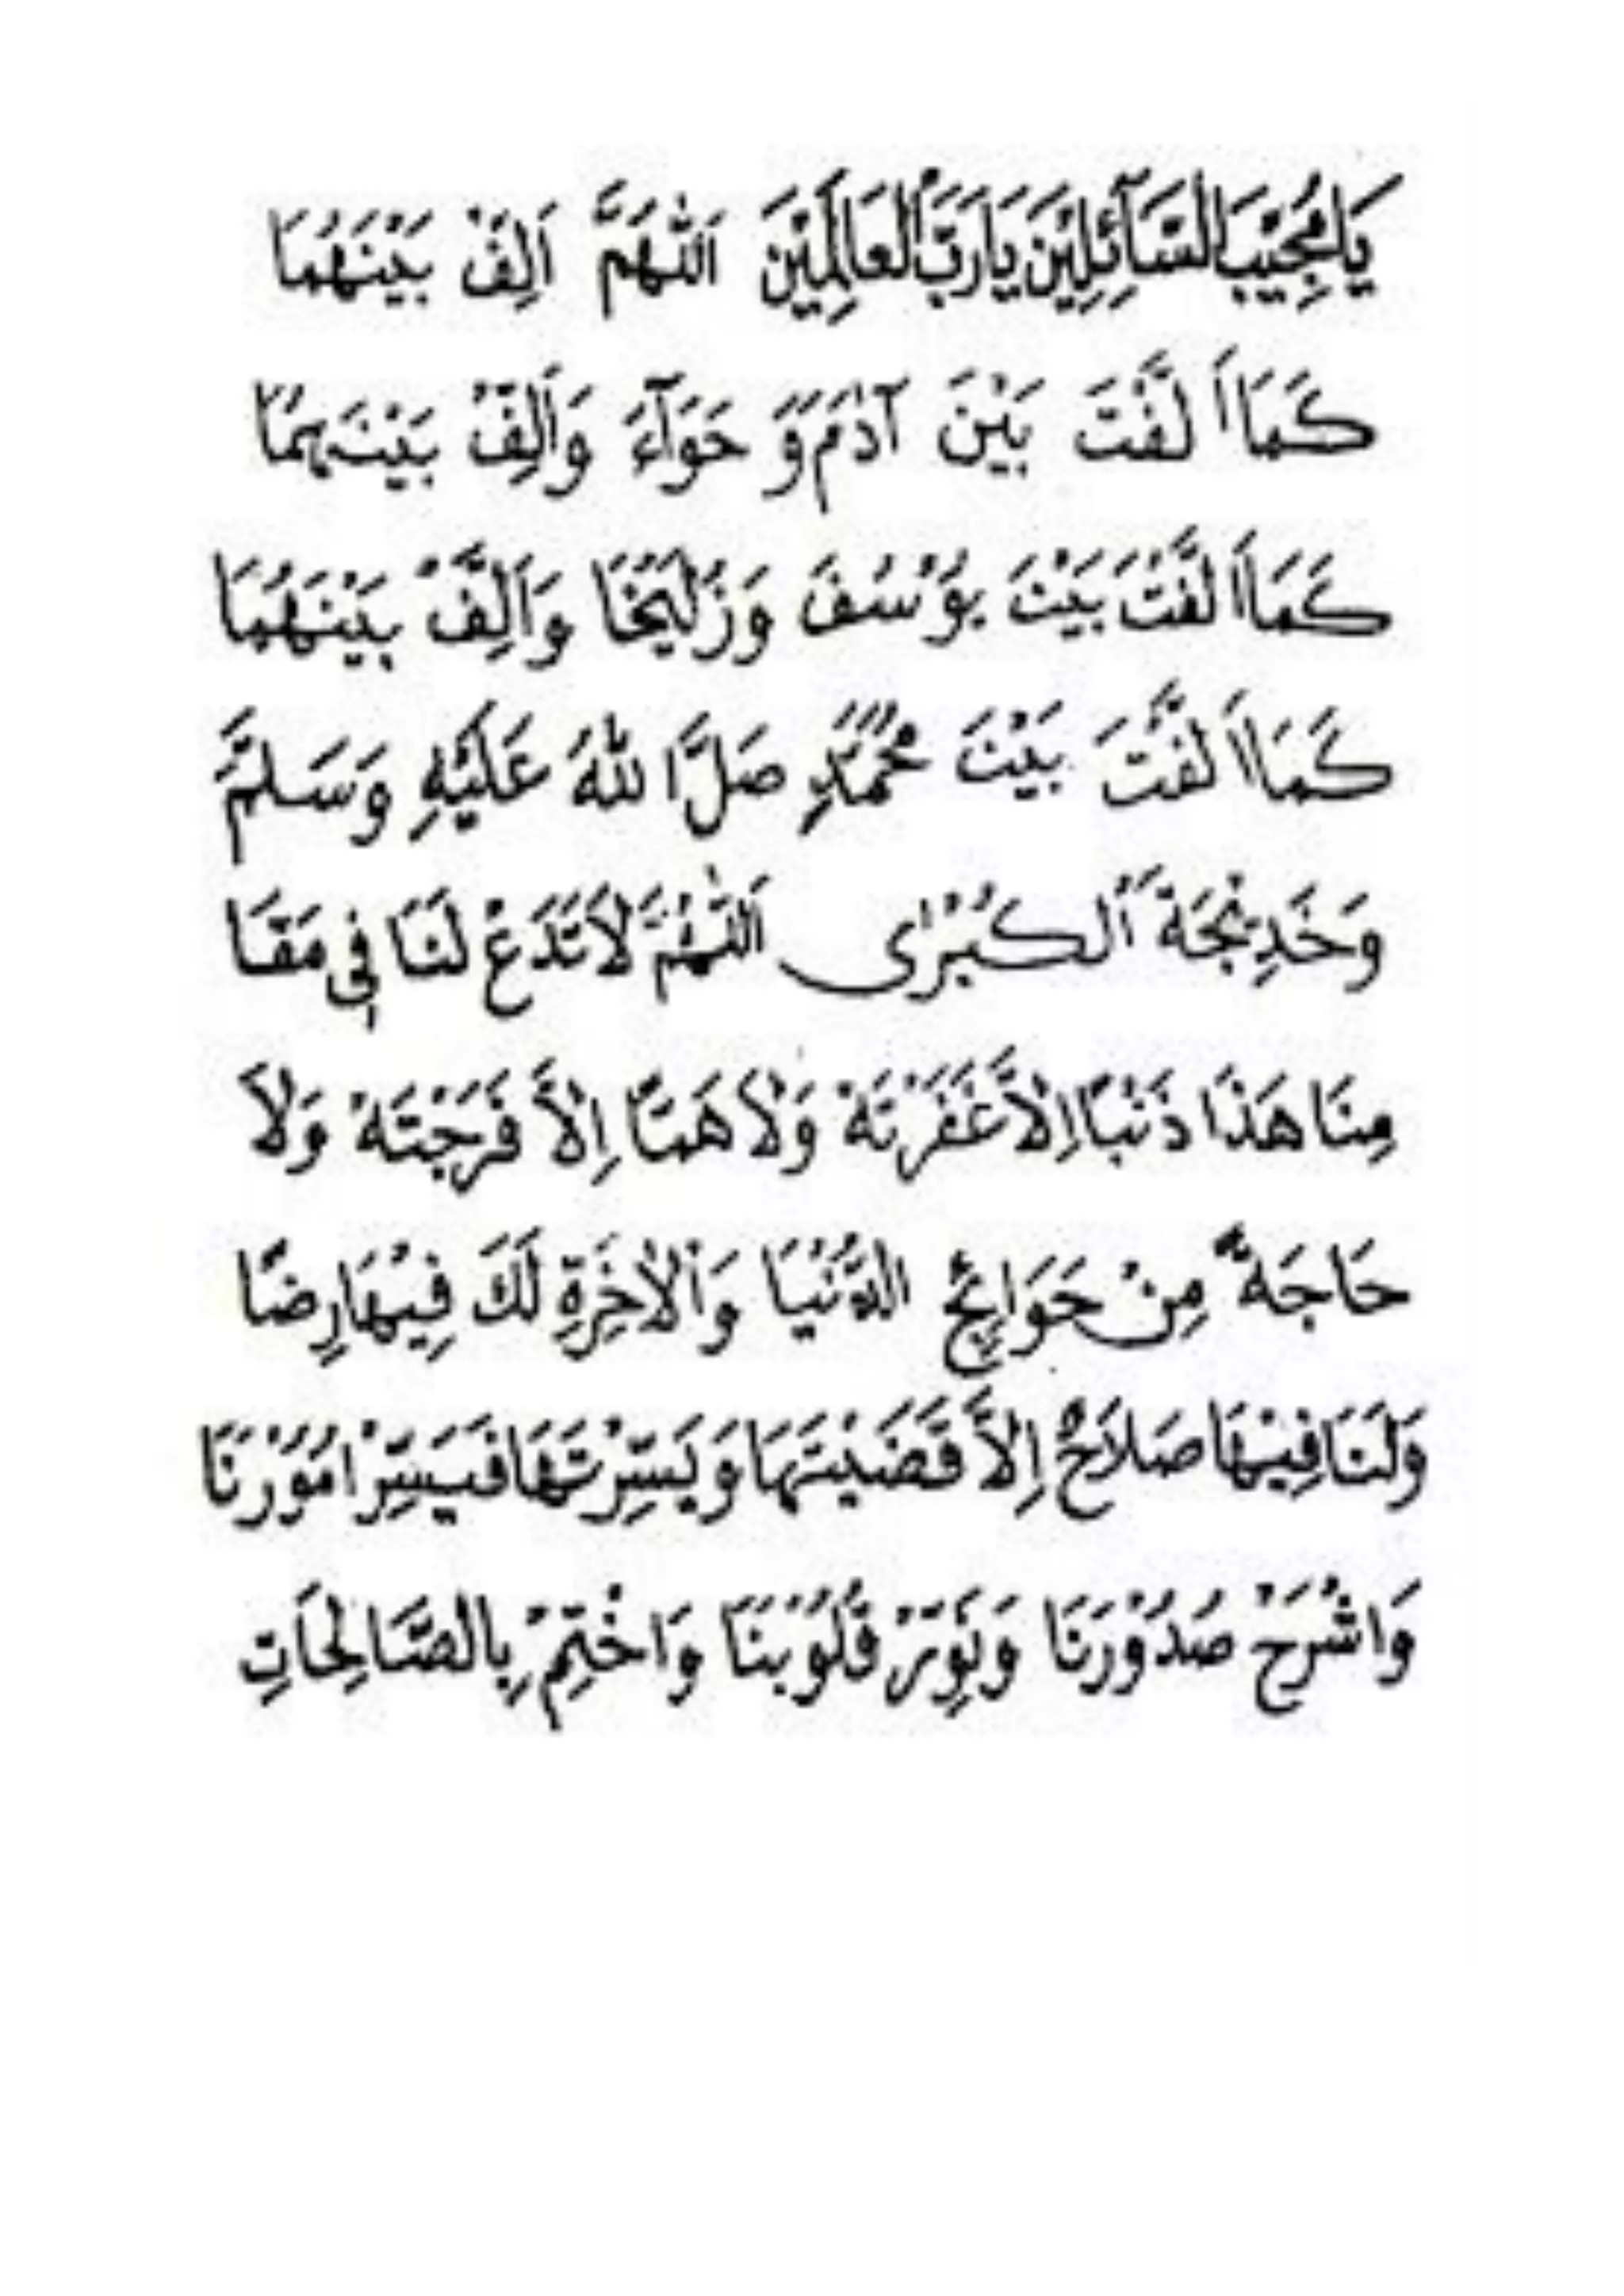 يَامُجِيْبَ السَّآئِلِيْنَ يَارَبَّ الْعَالَمِيْنَ اَللّٰهُمَّ اَلِّفْ بَيْنَهُمَا
كَمَا اَلَّفْتَ بَيْنَ آدَمَ وَ حَوَآءَ وَاَلِّفْ بَيْنَهُمَا
كَمَا اَلَّفْتَ بَيْنَ يُوْسُفَ وَزُلَيْخَا وَاَلِّفْ بَيْنَهُمَا
كَمَا اَلَّفْتَ بَيْنَ مُحَمَّدٍ صَلَّا للهُ عَلَيْهِ وَسَلَّمَ
وَخَدِيْجَةَ الْكُبْرٰى اَللّٰهُمَّ لَاتَدَعْ لَنَا فِى مَقَا
مِنَا هَذَا ذَنْبًا اِلَّا غَفَرْتَهُ وَلَا هَمًّا اِلَّا فَرَجْتَهُ وَلَا
حَاجَةً مِنْ حَوَائِجِ الدُّنْيَا وَالْاٰخِرَةِ لَكَ فِيْهَا رِضًا
وَلَنَا فِيْهَا صَلَاحٌ اِلَّا قَضَيْتَهَا وَيَسِّرْتَهَا فَيَسِّرْ اُمُوْرَنَا
وَاشْرَحْ صُدُوْرَنَا وَنَوِّرْ قُلُوْبَنَا وَاخْتِمْ بِالصَّالِحَاتِ